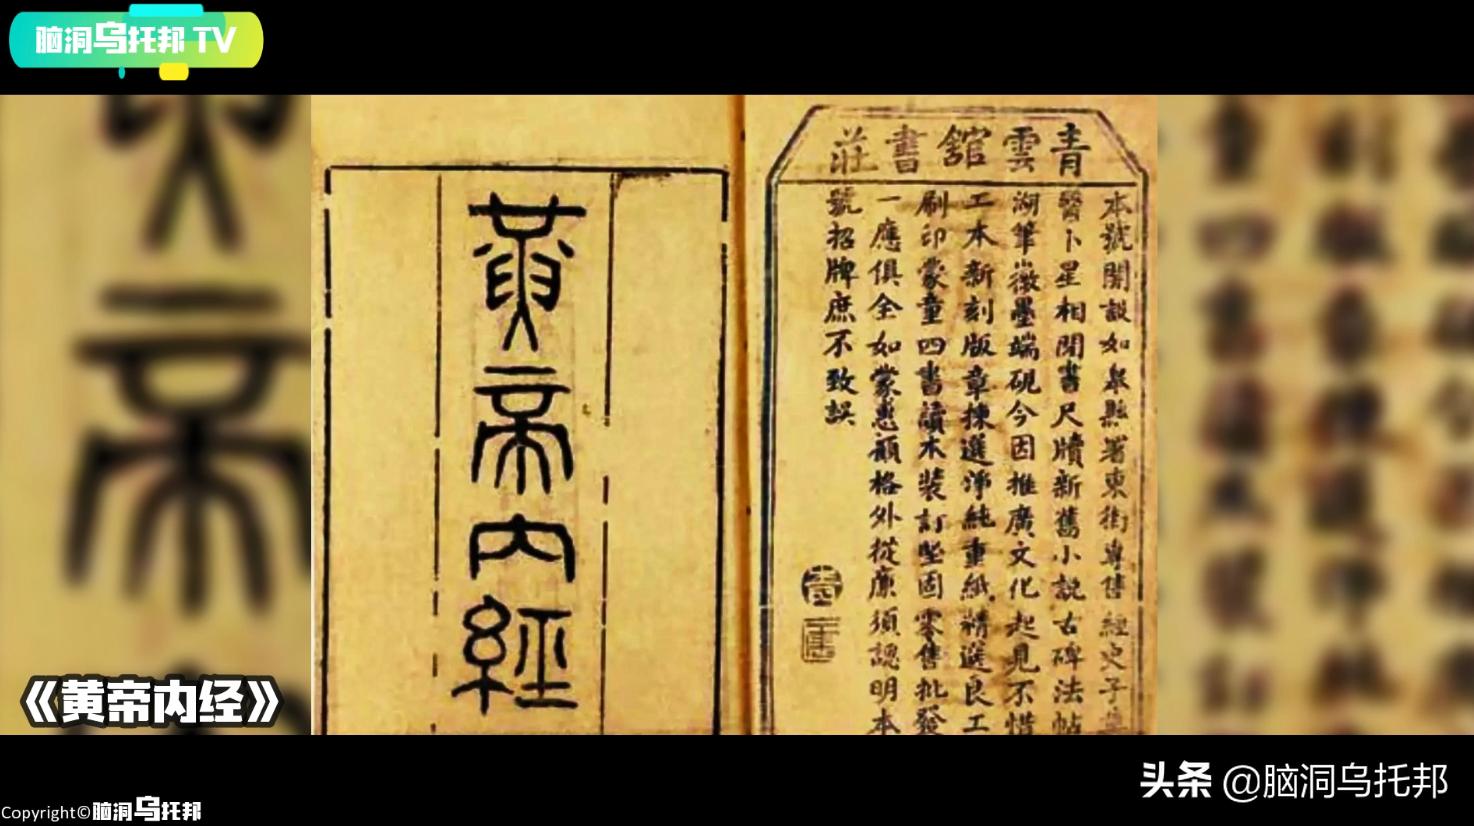 脑洞乌托邦 TV
青雲館書莊
本號開設如皋縣署東街專售經史子集
醫卜星相閒書尺牘新舊小說古碑法帖
湖筆徽墨端硯今因推廣文化起見不惜
工本新刻版章揀選淨純重紙精選良工
刷印蒙童四書讀本裝訂坚固零售批發
一應俱全如蒙惠顧格外從廉須認明本
號招牌庶不致誤
黃帝內經
《黄帝内经》
头条 @脑洞乌托邦
Copyright©脑洞乌托邦